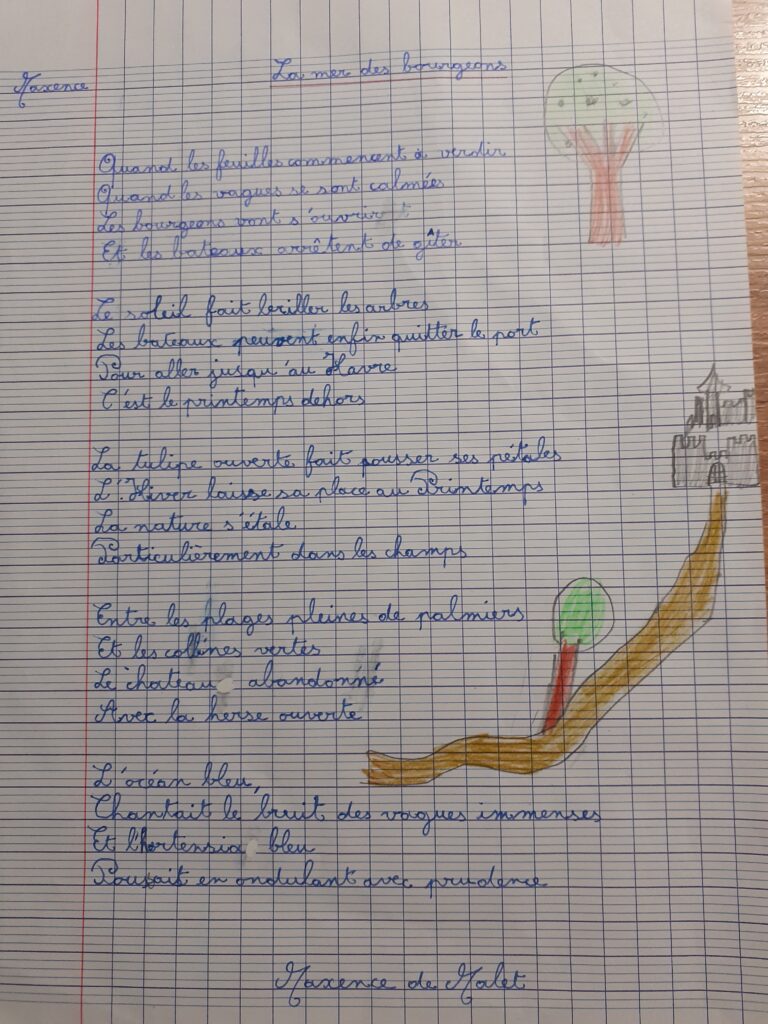 La mer des bourgeons
Maxence
Quand les feuilles commencent à verdir
Quand les vagues se sont calmées
Les bourgeons vont s'ouvrir
Et les bateaux arrêtent de gîter
Le soleil fait briller les arbres
Les bateaux peuvent enfin quitter le port
Pour aller jusqu'au Havre
C'est le printemps dehors
La tulipe ouverte fait pousser ses pétales
L'Hiver laisse sa place au Printemps
La nature s'étale
Particulièrement dans les champs
Entre les plages pleines de palmiers
Et les collines vertes
Le chateau abandonné
Avec la herse ouverte
L'océan bleu,
Chantait le bruit des vagues immenses
Et l'hortensia bleu
Poussait en ondulant avec prudence
Maxence de Malet